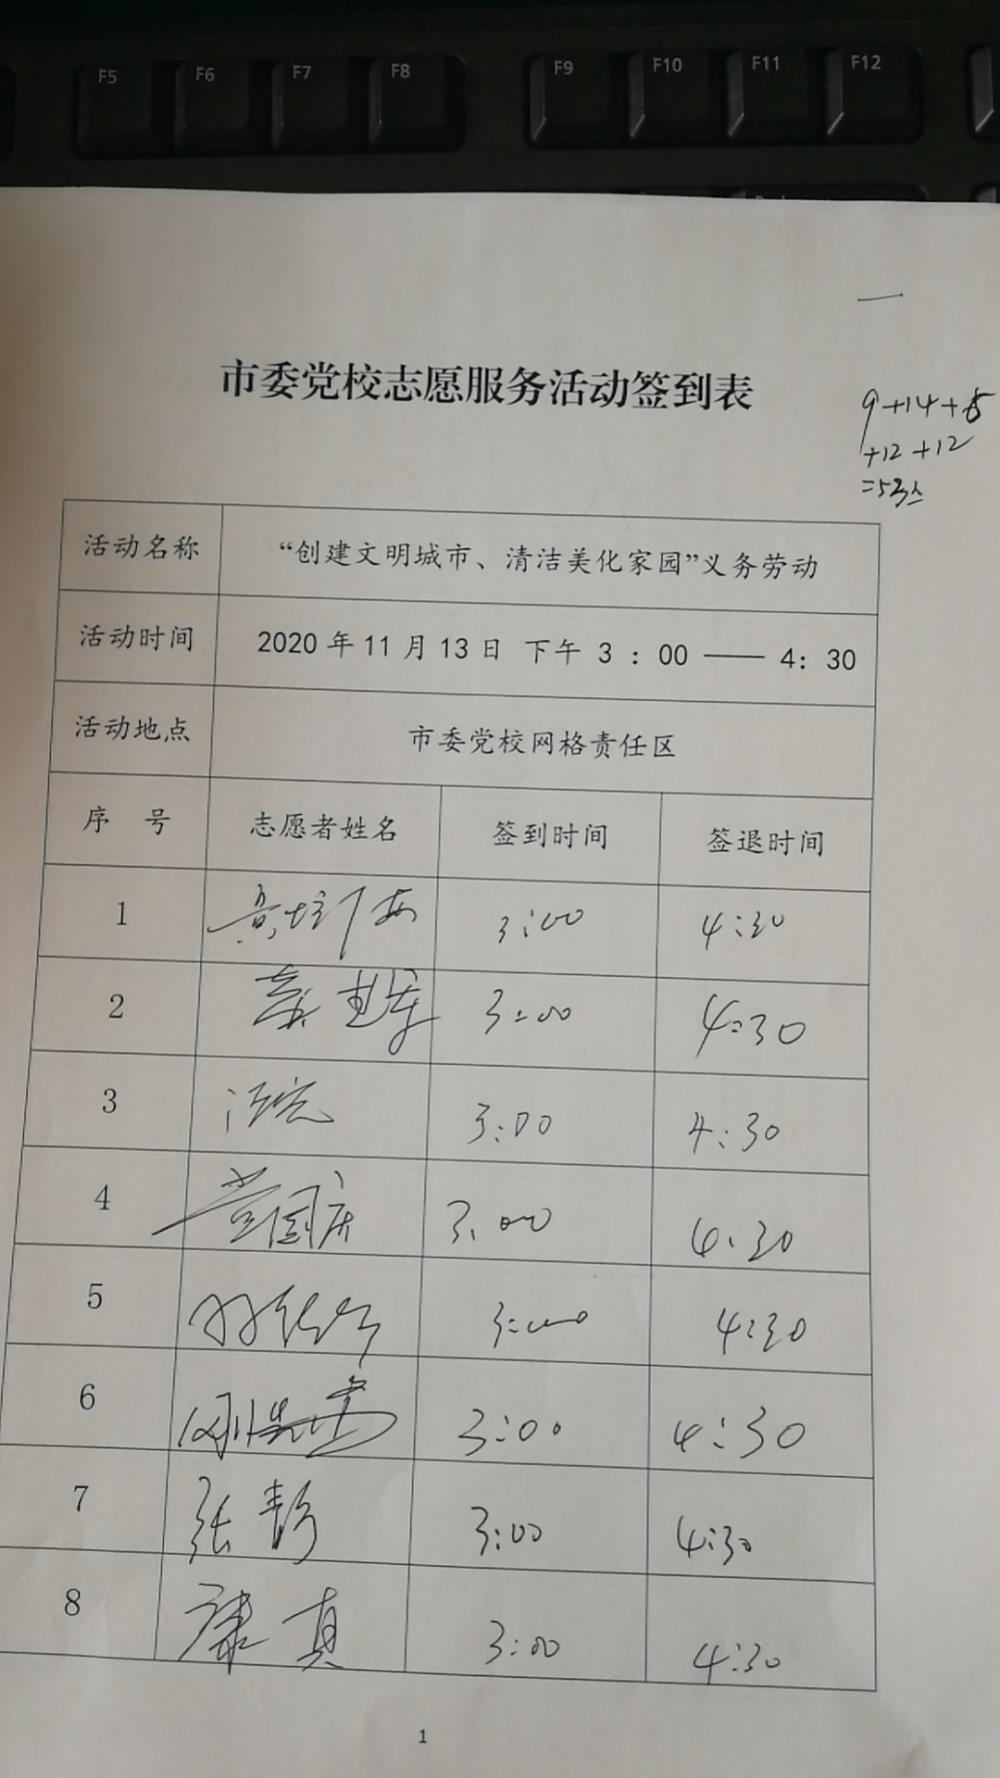 F5 F6 F7 F8 F9 F10 F11 F12
一
市委党校志愿服务活动签到表
9+14+6
+12+12
=53人
活动名称 “创建文明城市、清洁美化家园”义务劳动
活动时间 2020年11月13日 下午 3 : 00 —— 4: 30
活动地点 市委党校网格责任区
序 号 志愿者姓名 签到时间 签退时间
1 3:00 4:30
2 3:00 4:30
3 3:00 4:30
4 董国庆 3:00 4:30
5 3:00 4:30
6 3:00 4:30
7 张静 3:00 4:30
8 康真 3:00 4:30
1